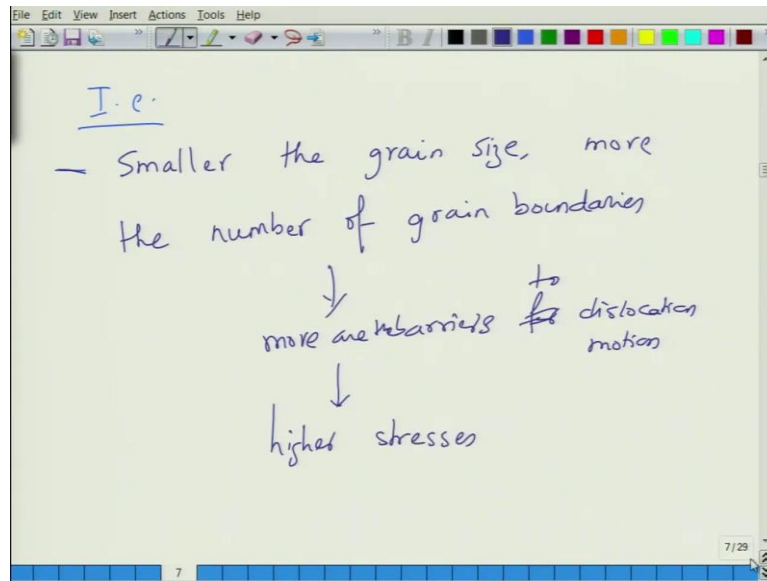 File Edit View Insert Actions Tools Help
» » B I
I.e.
— Smaller the grain size, more
the number of grain boundaries
↓
to
more are the barriers for dislocation
motion
↓
higher stresses
7/29
7